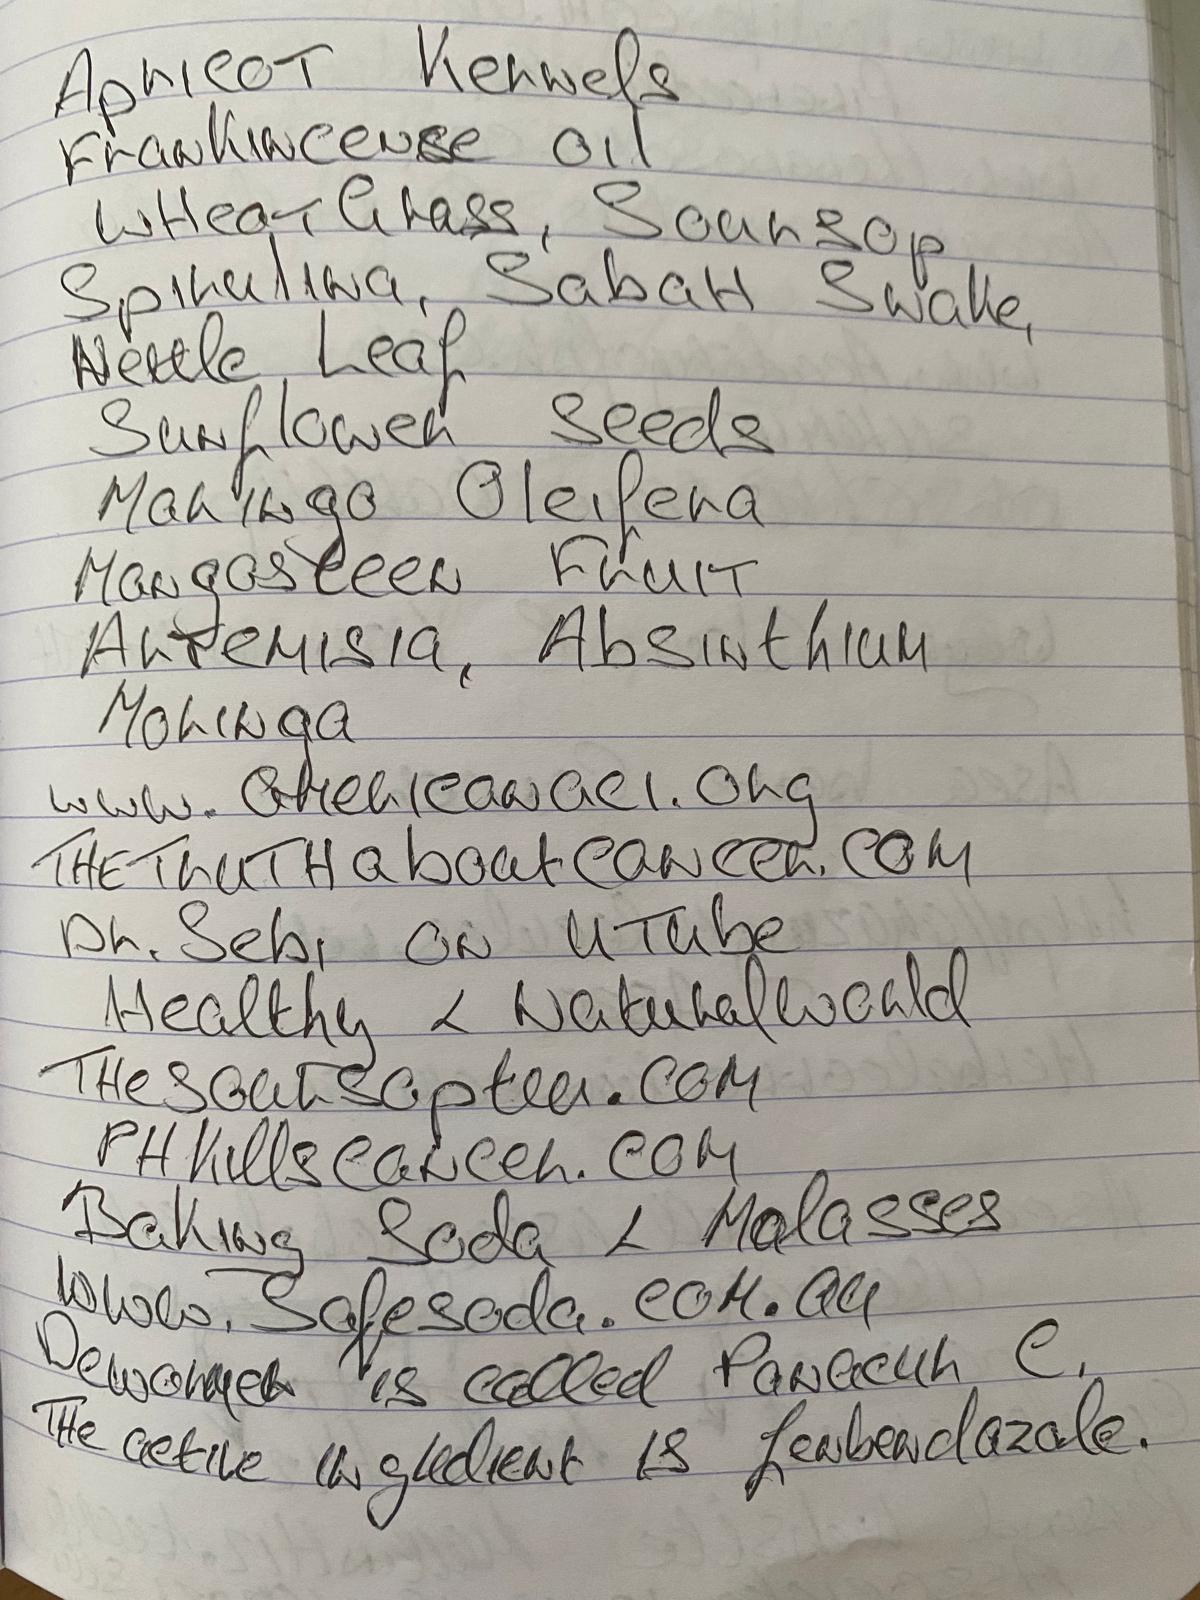 Apricot Kernels
Frankincense oil
WHeatGrass, Soursop
Spirulina, Sabah Snake,
Nettle Leaf
Sunflower Seeds
Maringo Oleifera
Mangosteen Fruit
Artemisia, Absinthium
Moringa
THETruTHaboutcancer.com
Dr. Sebi on UTube
Healthy & Naturalworld
THesoursoptea.com
PHkillscancer.com
Baking Soda & Malasses
www.Safesoda.com.au
Dewormer is called Panacur C.
THe active ingredient is fenbendazale.